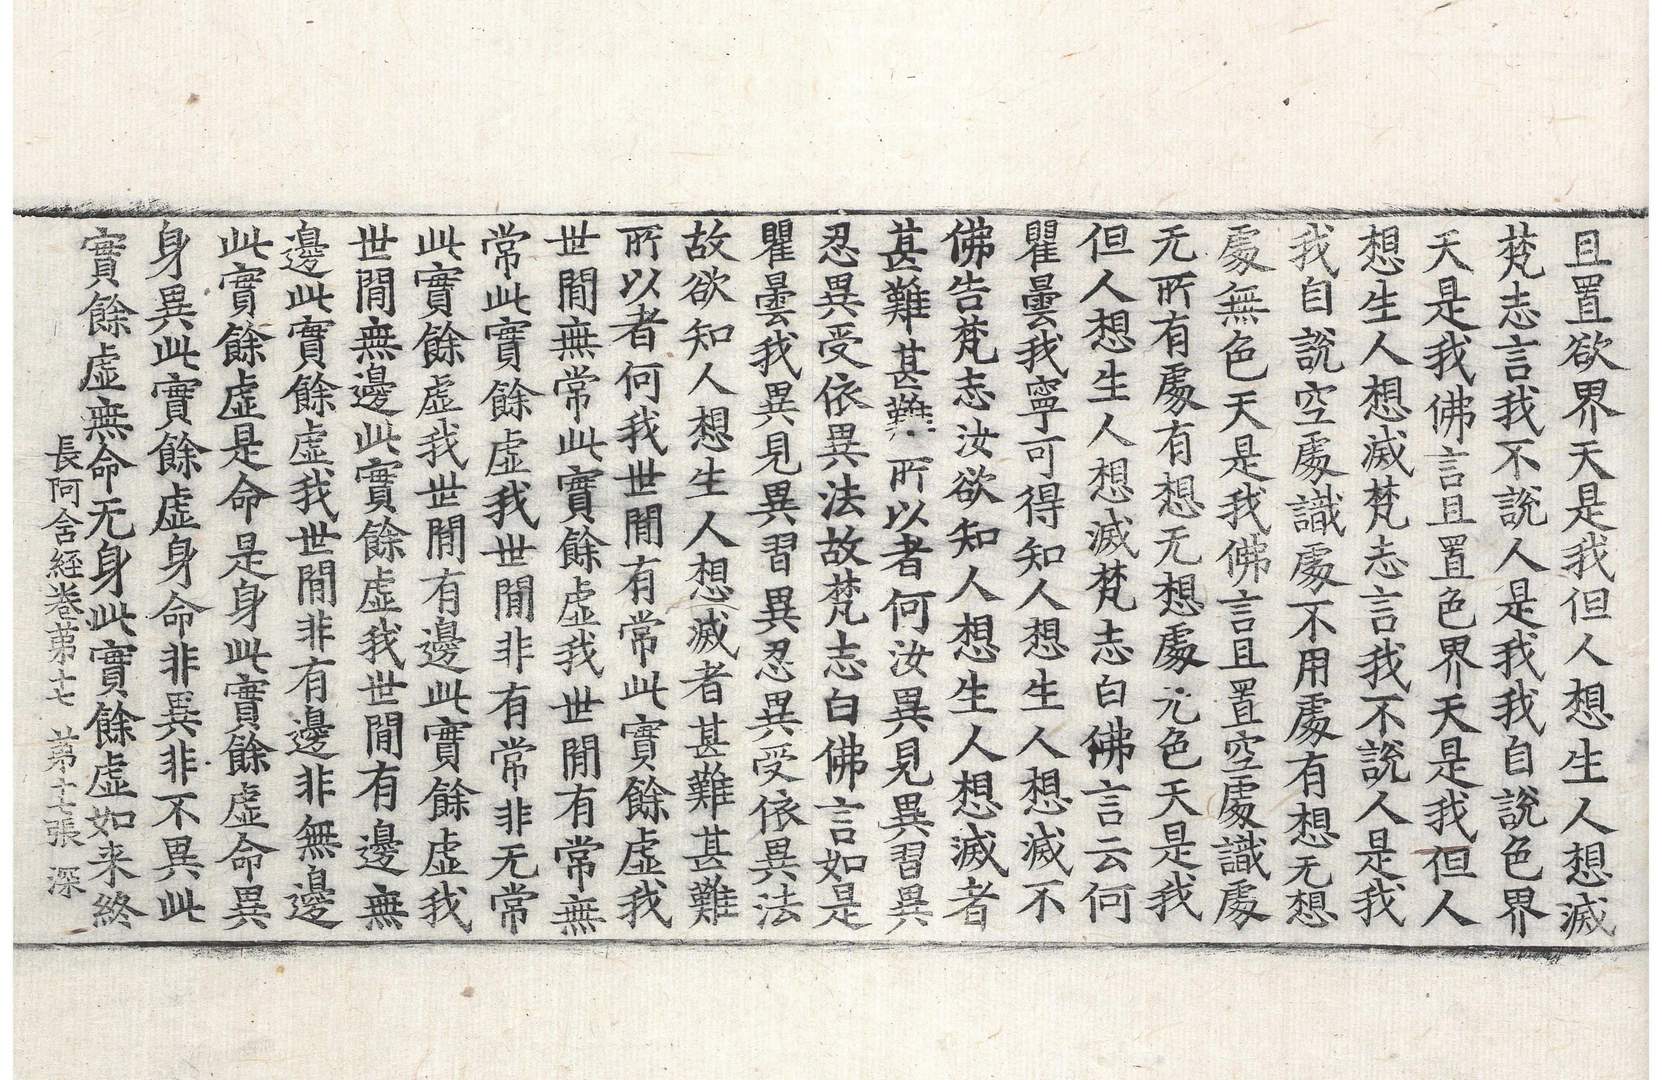 且置欲界天是我但人想生人想滅
梵志言我不說人是我我自說色界
天是我佛言且置色界天是我但人
想生人想滅梵志言我不說人是我
我自說空處識處不用處有想无想
處無色天是我佛言且置空處識處
无所有處有想无想處无色天是我
但人想生人想滅梵志白佛言云何
瞿曇我寧可得知人想生人想滅不
佛告梵志汝欲知人想生人想滅者
甚難甚難所以者何汝異見異習異
忍異受依異法故梵志白佛言如是
瞿曇我異見異習異忍異受依異法
故欲知人想生人想滅者甚難甚難
所以者何我世閒有常此實餘虛我
世閒無常此實餘虛我世閒有常無
常此實餘虛我世閒非有常非无常
此實餘虛我世閒有邊此實餘虛我
世閒無邊此實餘虛我世閒有邊無
邊此實餘虛我世閒非有邊非無邊
此實餘虛是命是身此實餘虛命異
身異此實餘虛身命非異非不異此
實餘虛無命无身此實餘虛如来終
長阿含経卷第十七 第十七張 深